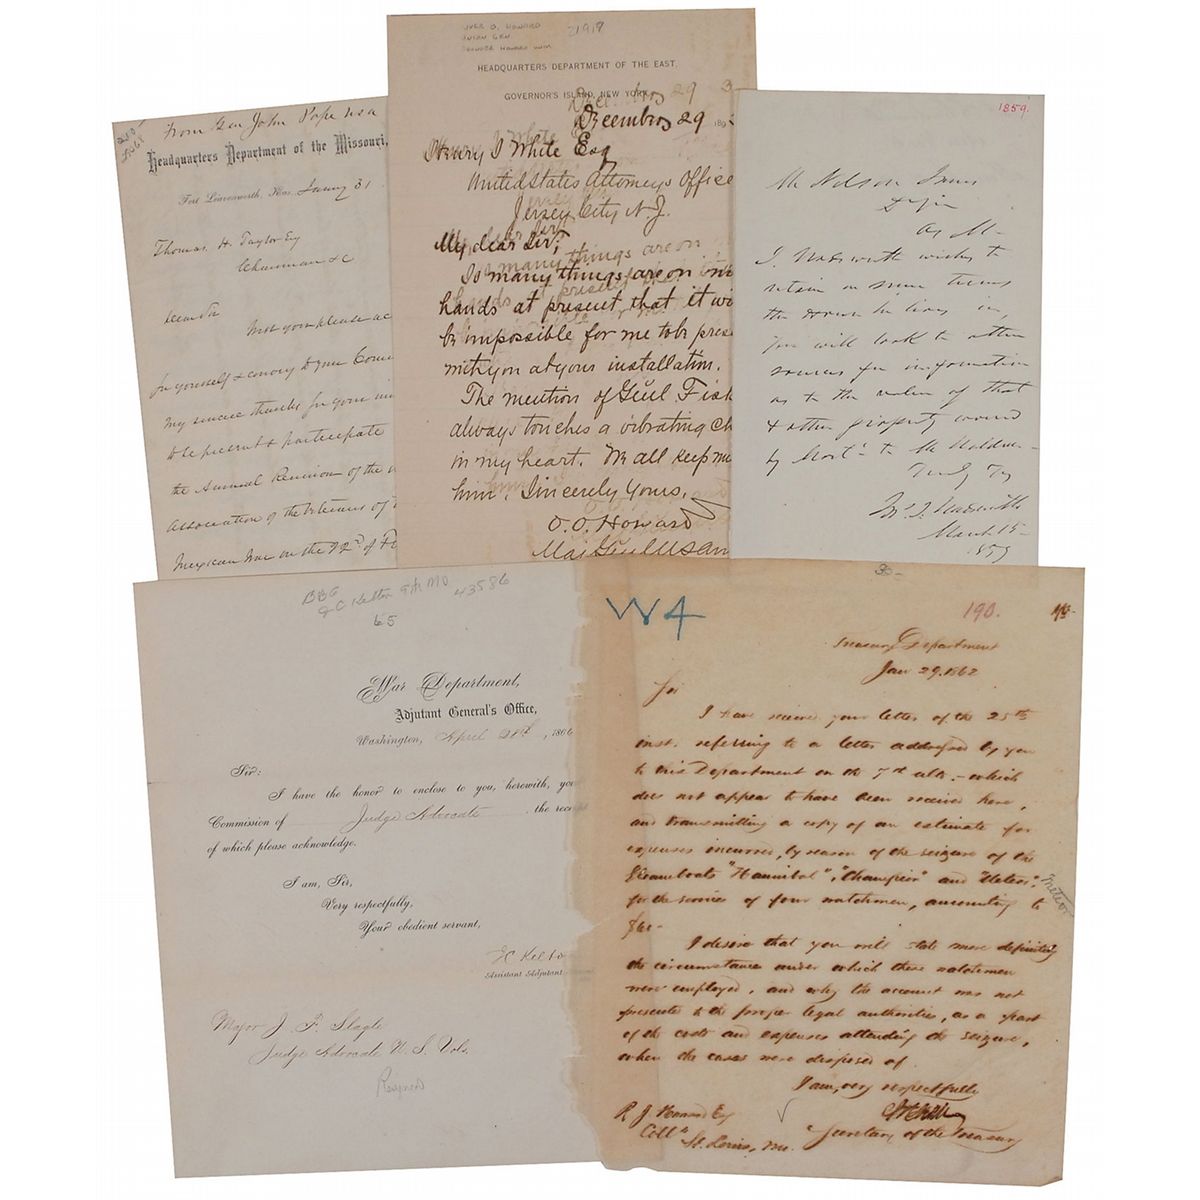 2401
From Gen John Pope USA
Headquarters Department of the Missouri,
Fort Leavenworth, Kas. January 31
Thomas. H. Taylor Esq
Chairman &c
Dear Sir
Will you please ac
for yourself & convey to your Com
my sincere thanks for your
to be present & participate
the Annual Reunion of the
Association of the Veterans of
Mexican War on the 22d of Fe
OVER O. HOWARD
UNION GEN
21917
HEADQUARTERS DEPARTMENT OF THE EAST.
GOVERNOR'S ISLAND, NEW YORK,
December 29 189
Henry S White Esq
United States Attorneys Office
Jersey City N. J.
My dear Sir;
So many things are on
hands at present that it wi
be impossible for me to be prese
with you at your installation.
The mention of Genl Fisk
always touches a vibrating ch
in my heart. We all keep
him. Sincerely Yours,
O. O. Howard
Maj Genl U S Army
1859.
Mr Nelson
As Mr
J. Wadsworth wishes to
retain on some terms
the House he lives in,
you will look to other
sources for information
as to the value of that
& other property
by Mortg to Mr
Truly Yrs
Wadsworth
March 15
1859
BBG
J C Kelton 9th MO 43586
65
War Department,
Adjutant General's Office,
Washington, April 28th, 186
Sir:
I have the honor to enclose to you, herewith, you
Commission of Judge Advocate the rece
of which please acknowledge.
I am, Sir,
Very respectfully,
Your obedient servant,
JC Kelto
Assistant Adjutant
Major J. F. Slagle
Judge Advocate U. S. Vols.
Resigned
30-
W4
190.
Treasury Department
Jan 29. 1862
Sir
I have received your letter of the 25th
inst. referring to a letter addressed by you
to this Department on the 7th ulto. - which
does not appear to have been received here,
and transmitting a copy of an estimate for
expenses incurred, by reason of the seizure of the
Steamboats "Hannibal", "Champion" and "Meteor",
Meteor
for the service of four watchmen, amounting to
$60-
I desire that you will state more definitely
the circumstances under which these watchmen
were employed, and why the account was not
presented to the proper legal authorities, as a part
of the costs and expenses attending the seizure,
when the cases were disposed of.
I am, very respectfully
Secretary of the Treasury
R J Howard Esq
Collr
St. Louis, Mo.